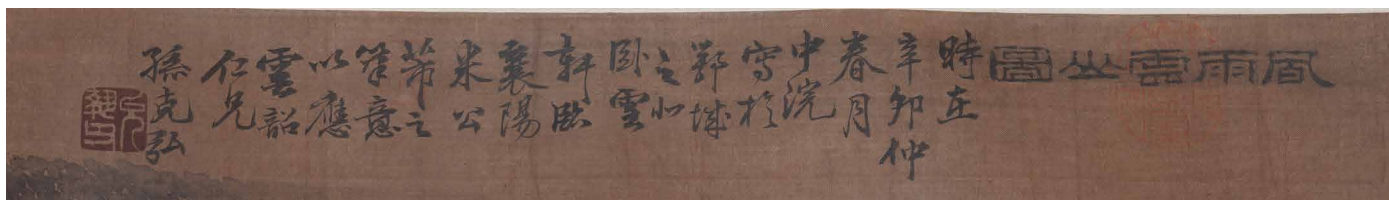 風雨雲山圖
時在
辛卯仲
春月
中浣
寫於
鄂城
之北
臥雲
軒臨
襄陽
米公
芾之
筆意
以應
雲韶
仁兄
孫克弘